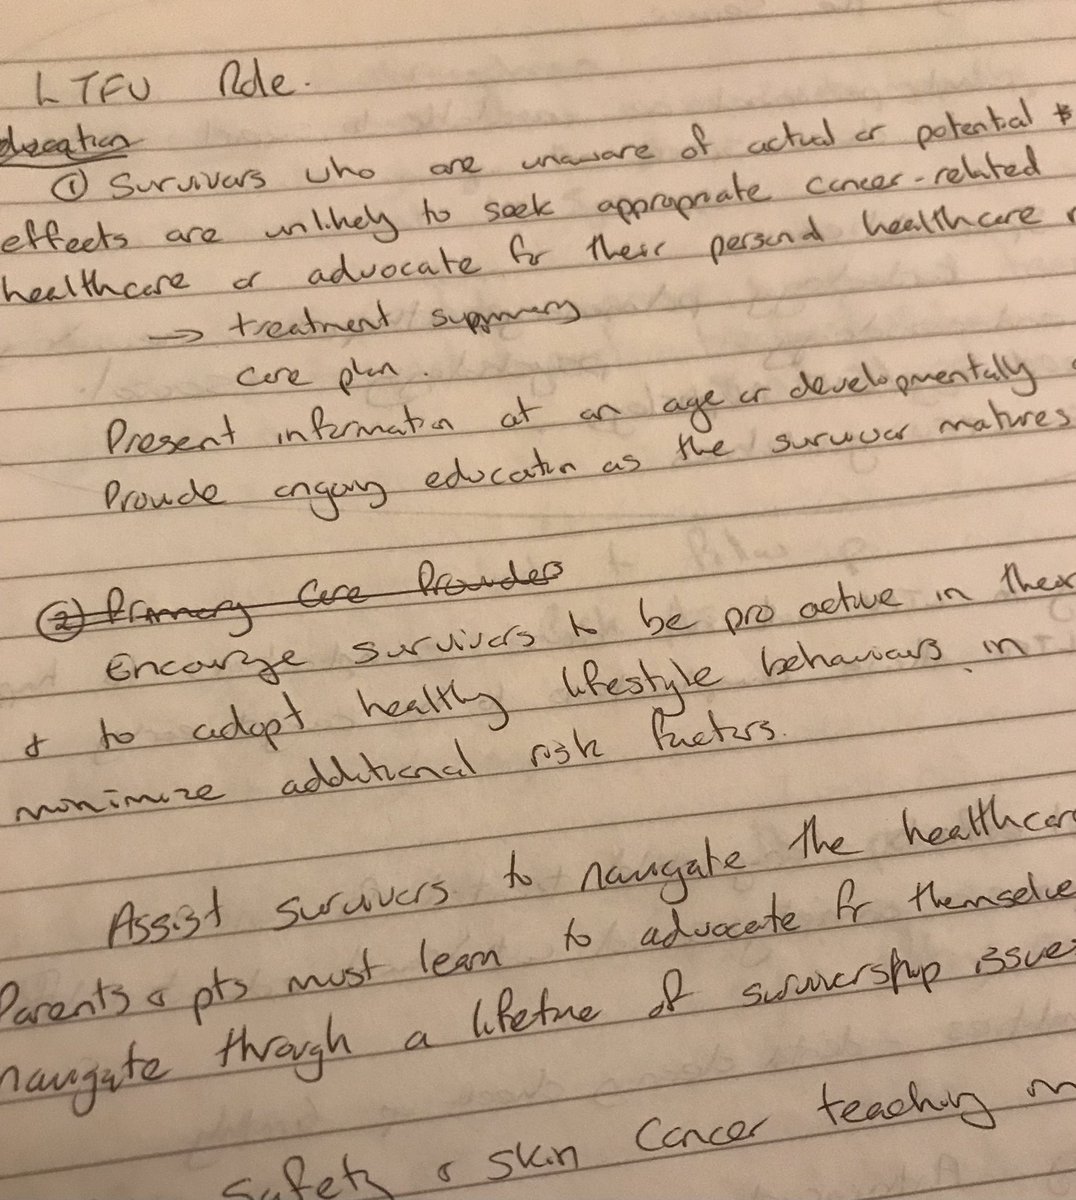 LTFU Role.
Education
① Survivors who are unaware of actual or potential
effects are unlikely to seek appropriate cancer-related
healthcare or advocate for their personal healthcare
→ treatment summary
care plan.
Present information at an age or developmentally
Provide ongoing education as the survivor matures
② Primary Care Providers
Encourage survivors to be pro active in their
& to adopt healthy lifestyle behaviours in
minimize additional risk factors.
Assist survivors to navigate the healthcare
Parents & pts must learn to advocate for themselve
navigate through a lifetime of survivership issues
Safety & skin cancer teaching